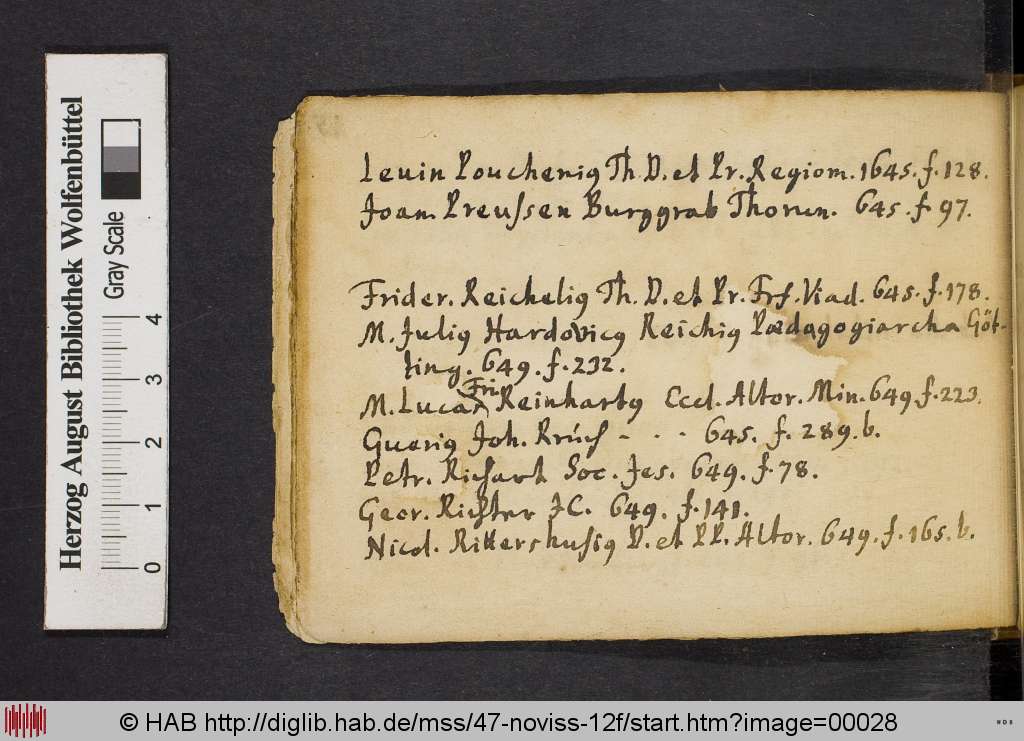 Levin Pouchenig Th. D. et Pr. Regiom. 1645. f. 128.
Joan. Preussen Burggrab Thorun. 645. f. 97.
Frider. Reichelig Th. D. et Pr. Frf. Viad. 645. f. 178.
M. Julig Hardovicg Reichig Pædagogiarcha Göt-
ting. 649. f. 232.
Fri.
M. Lucas Reinhartg Eccl. Altor. Min. 649. f. 223.
Joh. - - - 645. f. 289. b.
Petr. Richart Soc. Jes. 649. f. 78.
Geor. Richter JC. 649. f. 141.
Nicol. Rittershusig D. et PP. Altor. 649. f. 165. b.
Herzog August Bibliothek Wolfenbüttel
Gray Scale
0 1 2 3 4
© HAB http://diglib.hab.de/mss/47-noviss-12f/start.htm?image=00028